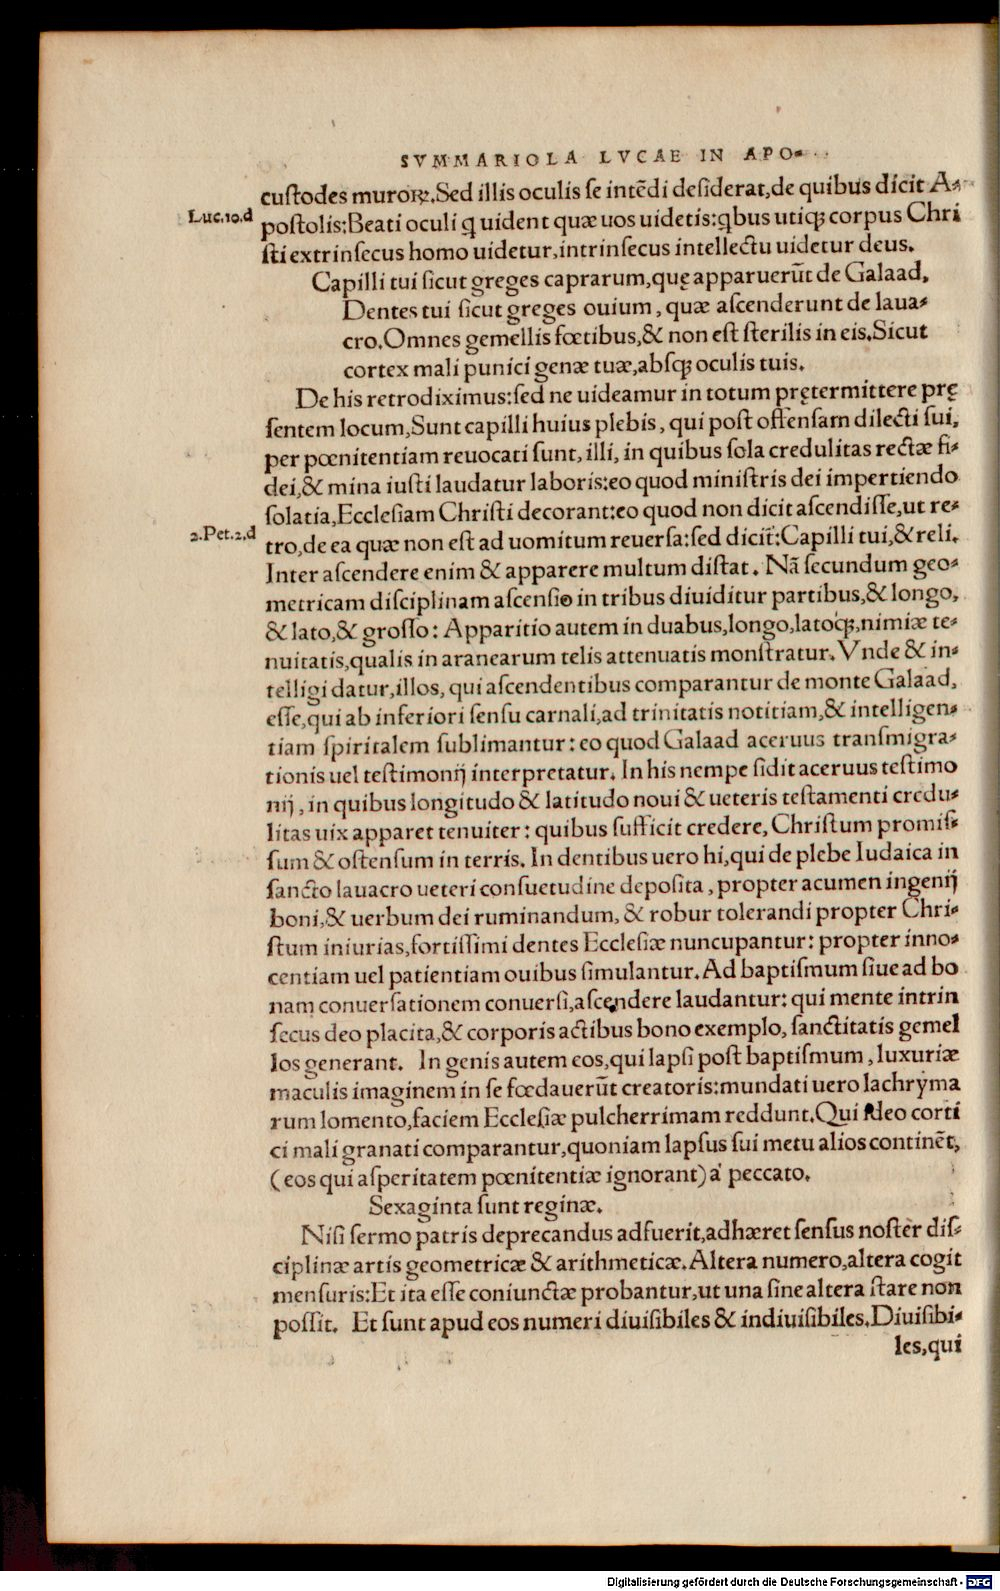 SVMMARIOLA LVCAE IN APO-
custodes muroꝝ. Sed illis oculis se intẽdi desiderat, de quibus dicit A-
Luc.10.d
postolis: Beati oculi q uident quæ uos uidetis: qbus utiqꝫ corpus Chri
sti extrinsecus homo uidetur, intrinsecus intellectu uidetur deus.
Capilli tui sicut greges caprarum, quę apparuerũt de Galaad.
Dentes tui sicut greges ouium, quæ ascenderunt de laua-
cro. Omnes gemellis fœtibus, & non est sterilis in eis. Sicut
cortex mali punici genæ tuæ, absqꝫ oculis tuis.
De his retrodiximus: sed ne uideamur in totum prętermittere prę
sentem locum, Sunt capilli huius plebis, qui post offensam dilecti sui,
per pœnitentiam reuocati sunt, illi, in quibus sola credulitas rectæ fi-
dei, & mina iusti laudatur laboris: eo quod ministris dei impertiendo
solatia, Ecclesiam Christi decorant: eo quod non dicit ascendisse, ut re-
2.Pet.2.d
tro, de ea quæ non est ad uomitum reuersa: sed dicit: Capilli tui, & reli.
Inter ascendere enim & apparere multum distat. Nã secundum geo-
metricam disciplinam ascensio in tribus diuiditur partibus, & longo,
& lato, & grosso: Apparitio autem in duabus, longo, latoqꝫ, nimiæ te-
nuitatis, qualis in aranearum telis attenuatis monstratur. Vnde & in-
telligi datur, illos, qui ascendentibus comparantur de monte Galaad,
esse, qui ab inferiori sensu carnali, ad trinitatis notitiam, & intelligen-
tiam spiritalem sublimantur: eo quod Galaad aceruus transmigra-
tionis uel testimonij interpretatur. In his nempe sidit aceruus testimo
nij, in quibus longitudo & latitudo noui & ueteris testamenti credu-
litas uix apparet tenuiter: quibus sufficit credere, Christum promis-
sum & ostensum in terris. In dentibus uero hi, qui de plebe Iudaica in
sancto lauacro ueteri consuetudine deposita, propter acumen ingenij
boni, & uerbum dei ruminandum, & robur tolerandi propter Chri-
stum iniurias, fortissimi dentes Ecclesiæ nuncupantur: propter inno-
centiam uel patientiam ouibus simulantur. Ad baptismum siue ad bo
nam conuersationem conuersi, ascendere laudantur: qui mente intrin
secus deo placita, & corporis actibus bono exemplo, sanctitatis gemel
los generant. In genis autem eos, qui lapsi post baptismum, luxuriæ
maculis imaginem in se fœdauerũt creatoris: mundati uero lachryma
rum lomento, faciem Ecclesiæ pulcherrimam reddunt. Qui Ideo corti
ci mali granati comparantur, quoniam lapsus sui metu alios continẽt,
(eos qui asperitatem pœnitentiæ ignorant) à peccato.
Sexaginta sunt reginæ.
Nisi sermo patris deprecandus adfuerit, adhæret sensus noster dis-
ciplinæ artis geometricæ & arithmeticæ. Altera numero, altera cogit
mensuris: Et ita esse coniunctæ probantur, ut una sine altera stare non
possit. Et sunt apud eos numeri diuisibiles & indiuisibiles. Diuisibi-
les, qui
Digitalisierung gefördert durch die Deutsche Forschungsgemeinschaft - DFG